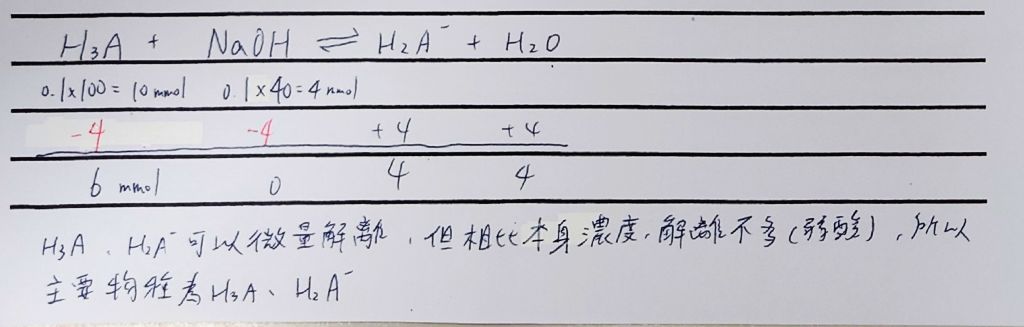 H₃A + NaOH ⇌ H₂A⁻ + H₂O
0.1x100 = 10 mmol 0.1x40=4 mmol
-4 -4 +4 +4
6 mmol 0 4 4
H₃A、H₂A⁻可以微量解離,但相比本身濃度,解離不多(弱酸),所以
主要物種為H₃A、H₂A⁻